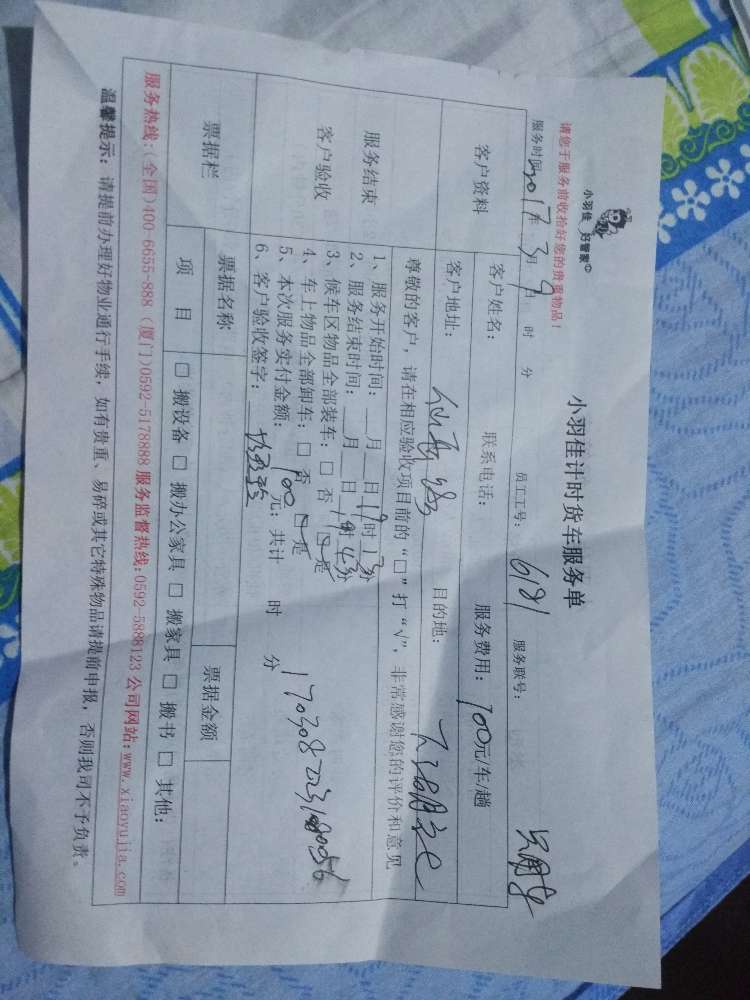 小羽佳 好管家©
小羽佳计时货车服务单
请您于服务前收拾好您的贵重物品！
服务时间：2017年3月9日 时 分 员工工号：6181 服务联号：
客户资料 客户姓名： 联系电话： 服务费用：100元/车/趟
客户地址：仙岳路 目的地：
尊敬的客户，请在相应验收项目前的“□”打“√”，非常感谢您的评价和意见
服务结束
客户验收
1、服务开始时间：__月__日19时13分
2、服务结束时间：__月__日19时43分
3、候车区物品全部装车：□ 否 □ 是
4、车上物品全部卸车：□ 否 □ 是
5、本次服务实付金额：100元；共计 时 分
6、客户验收签字：
票据栏 票据名称 票据金额
项 目 □ 搬设备 □ 搬办公家具 □ 搬家具 □ 搬书 □ 其他：
服务热线：(全国)400-6655-888 (厦门)0592-5178888 服务监督热线：0592-5888123 公司网站：www.xiaoyujia.com
温馨提示：请提前办理好物业通行手续，如有贵重、易碎或其它特殊物品请提前申报，否则我司不予负责。